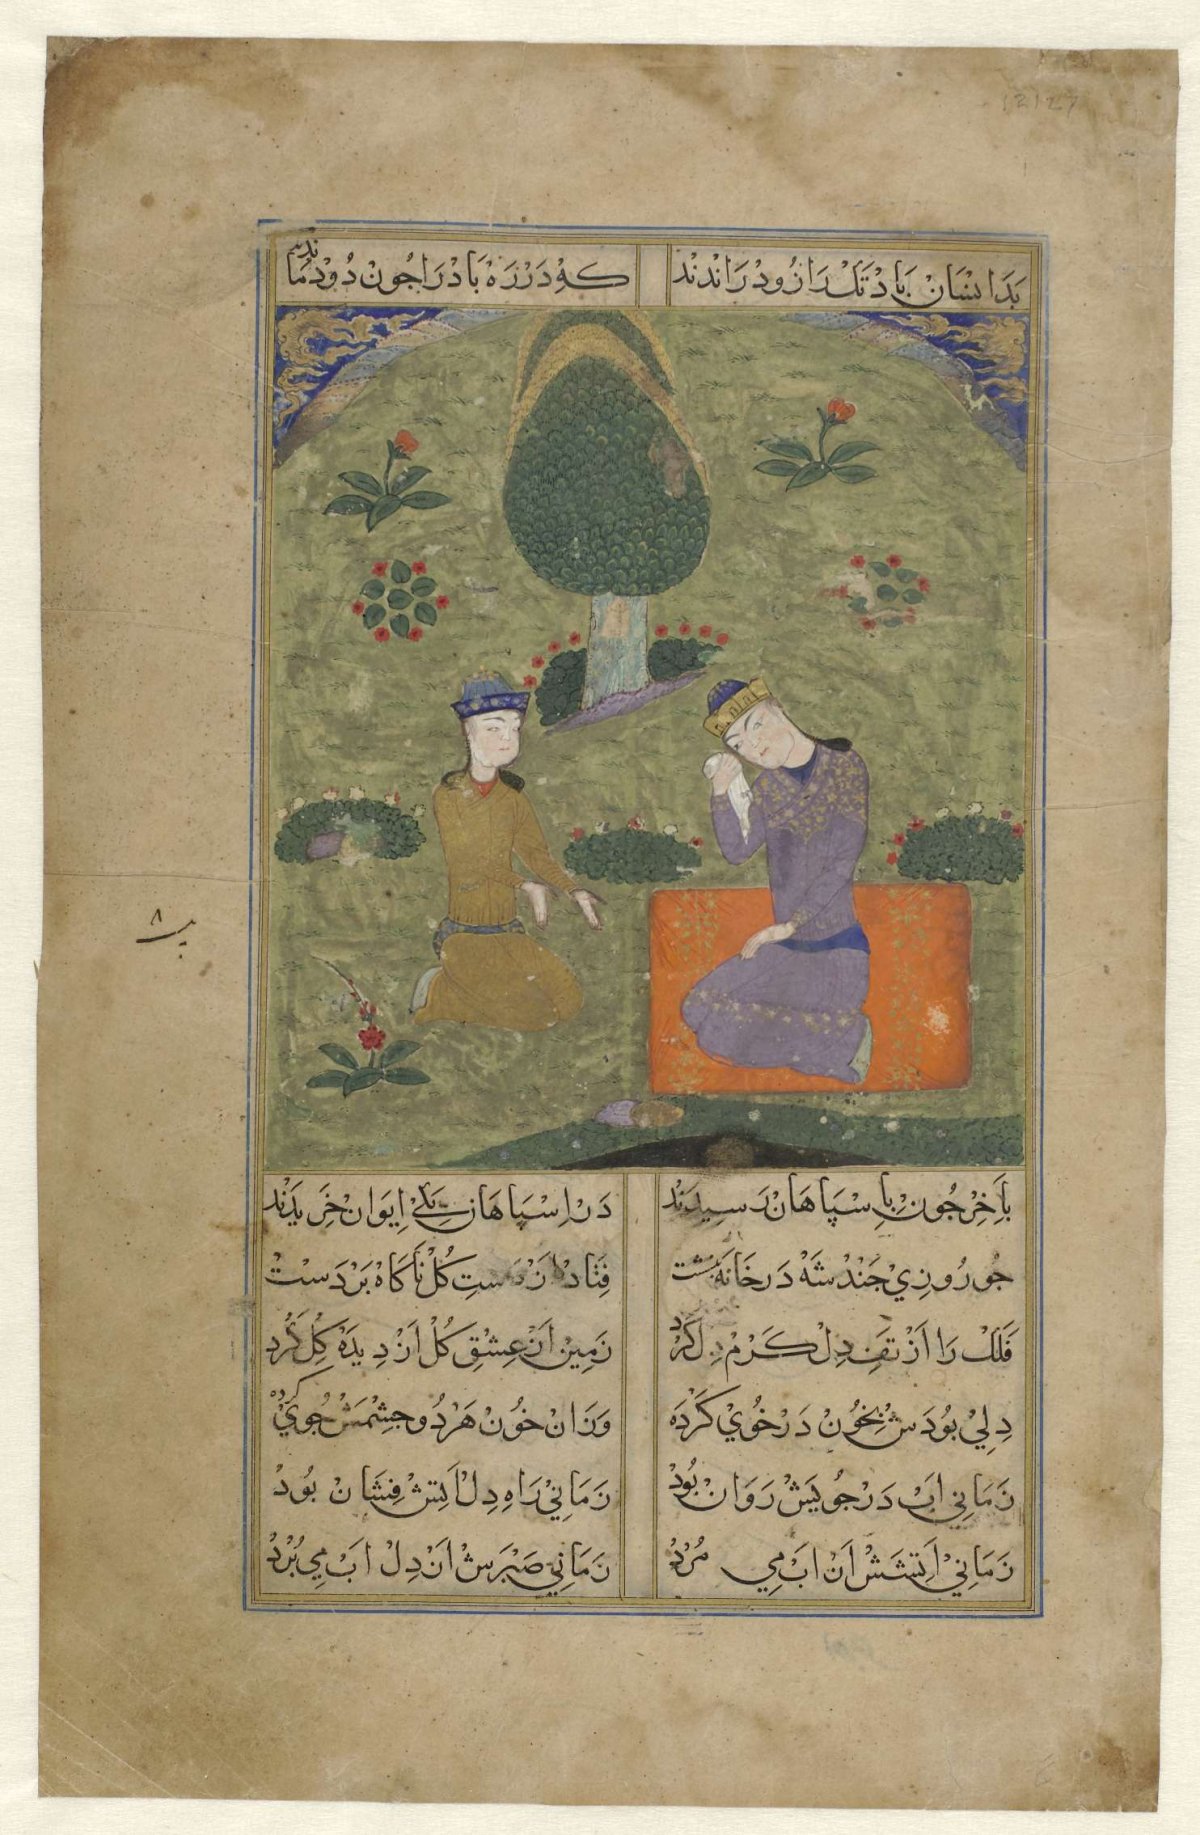 12127
بدانسان باد تک را زود راندند
که در ره باد را جون دود ماندند
باخر جون باسپاهان رسیدند
در اسپاهان یکی ایوان خریدند
جو روزی جند شه در خانه بنشست
فتاد از دست کل ناکاه بر دست
فلک را از تف دل کرم دل کرد
زمین از عشق کل از دیده کل کرد
دلی بودش بخون در خوی کرده
وزان خون هر دو جشمش جوی کرده
زمانی اب در جویش روان بود
زمانی راه دل اتش فشان بود
زمانی اتشش از اب می مرد
زمانی صبرش از دل اب می برد
۸